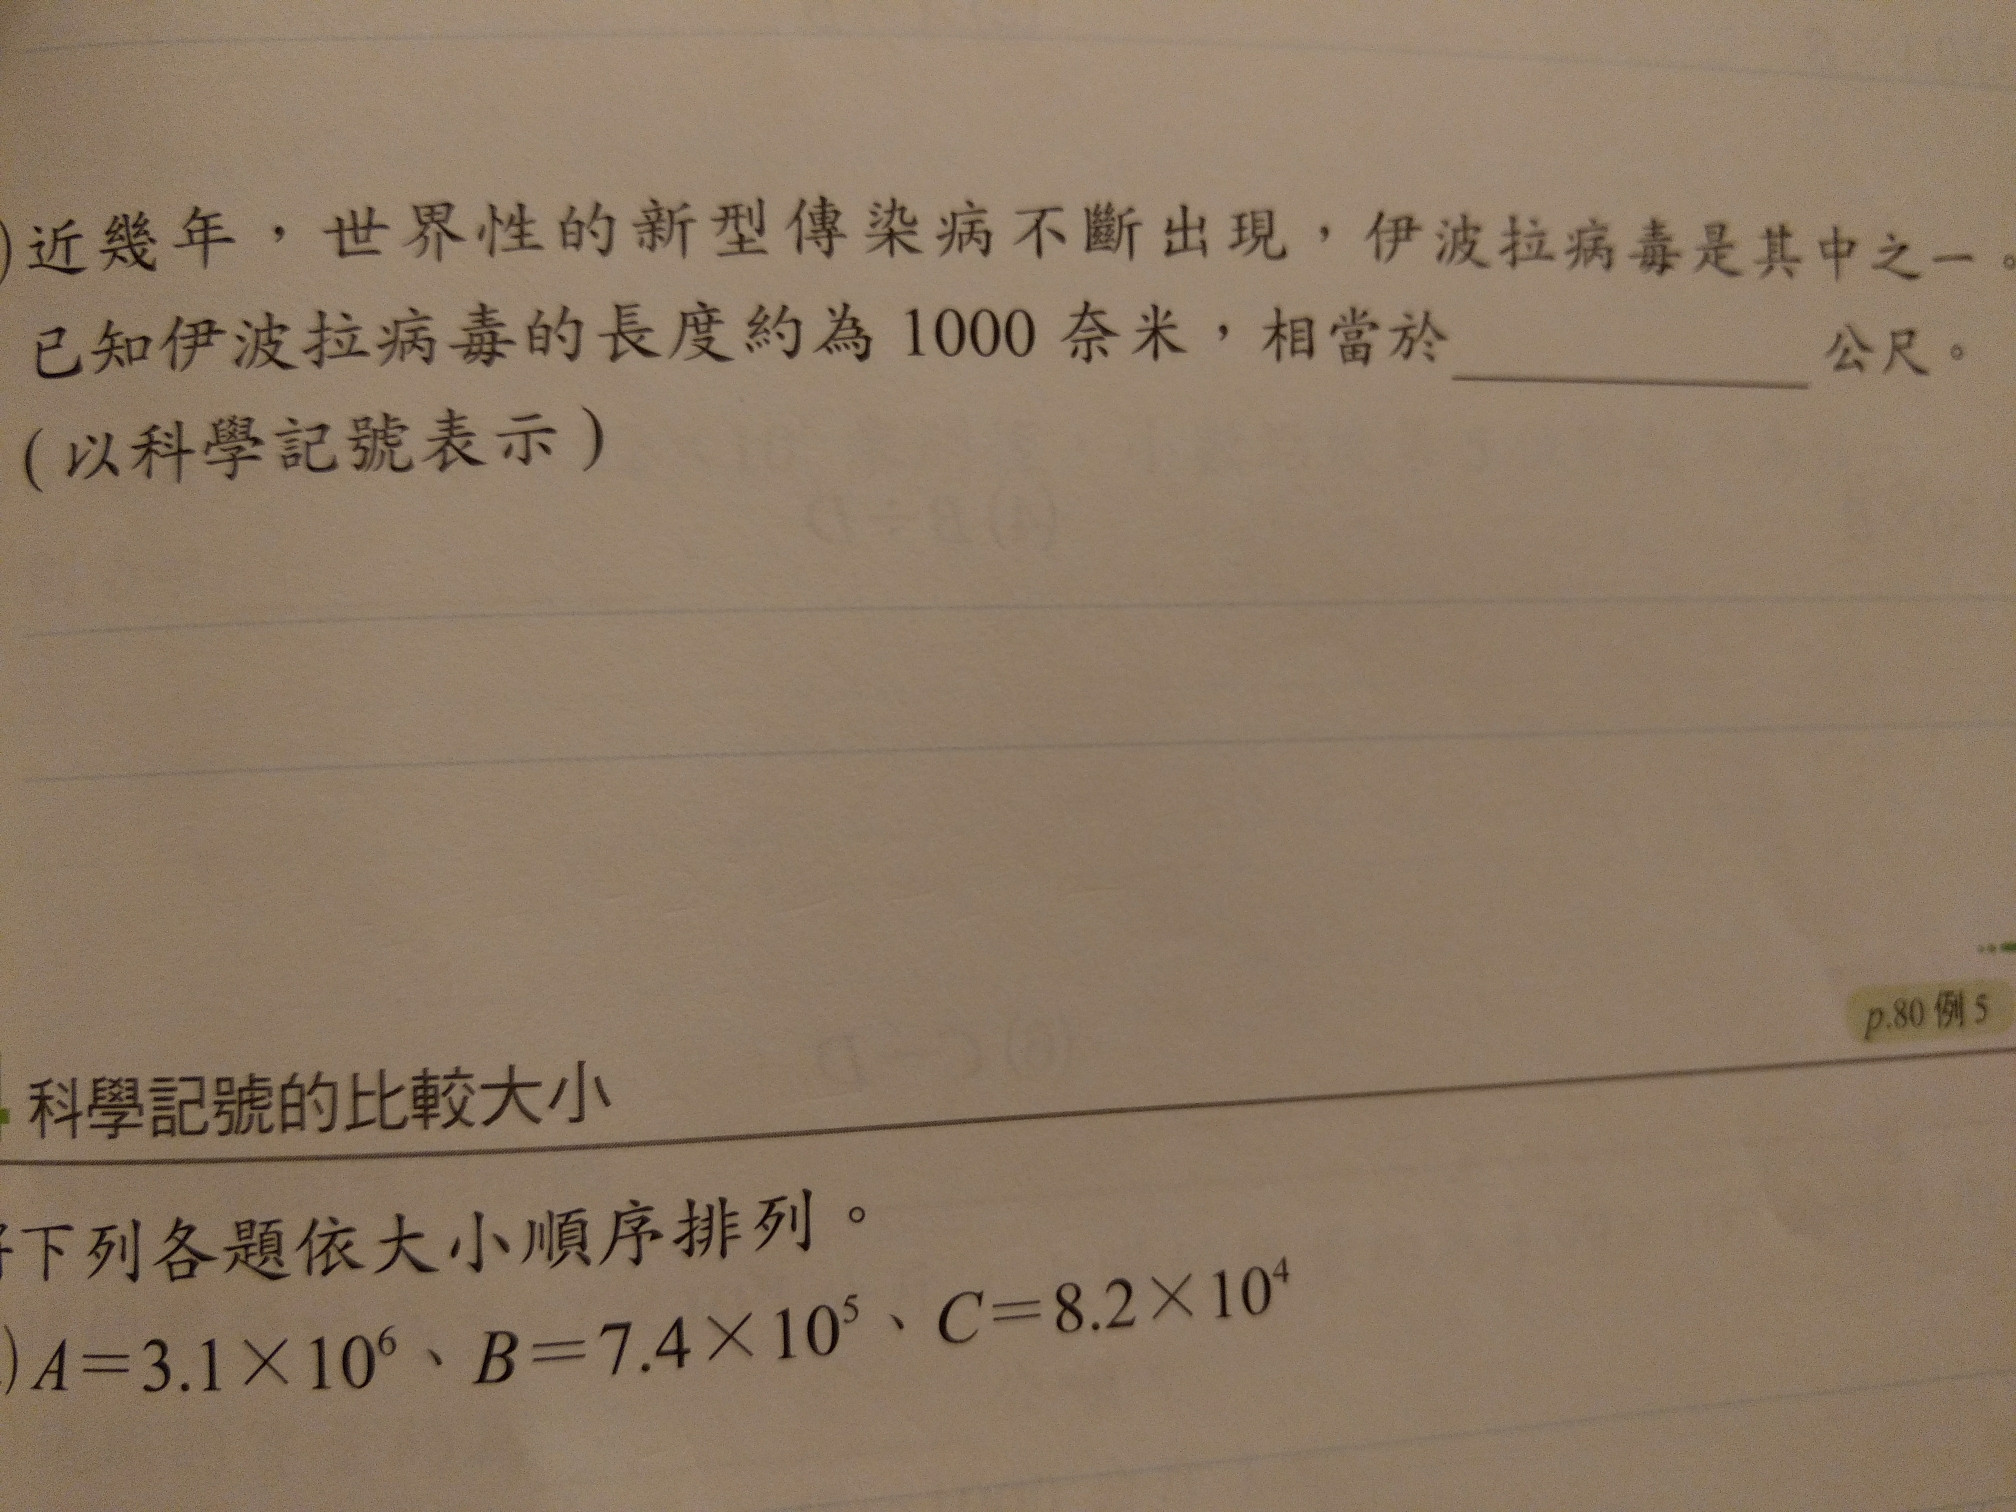 )近幾年，世界性的新型傳染病不斷出現，伊波拉病毒是其中之一。
已知伊波拉病毒的長度約為 1000 奈米，相當於＿＿＿＿＿公尺。
（以科學記號表示）
p.80 例 5
科學記號的比較大小
下列各題依大小順序排列。
)A＝3.1×10⁶、B＝7.4×10⁵、C＝8.2×10⁴